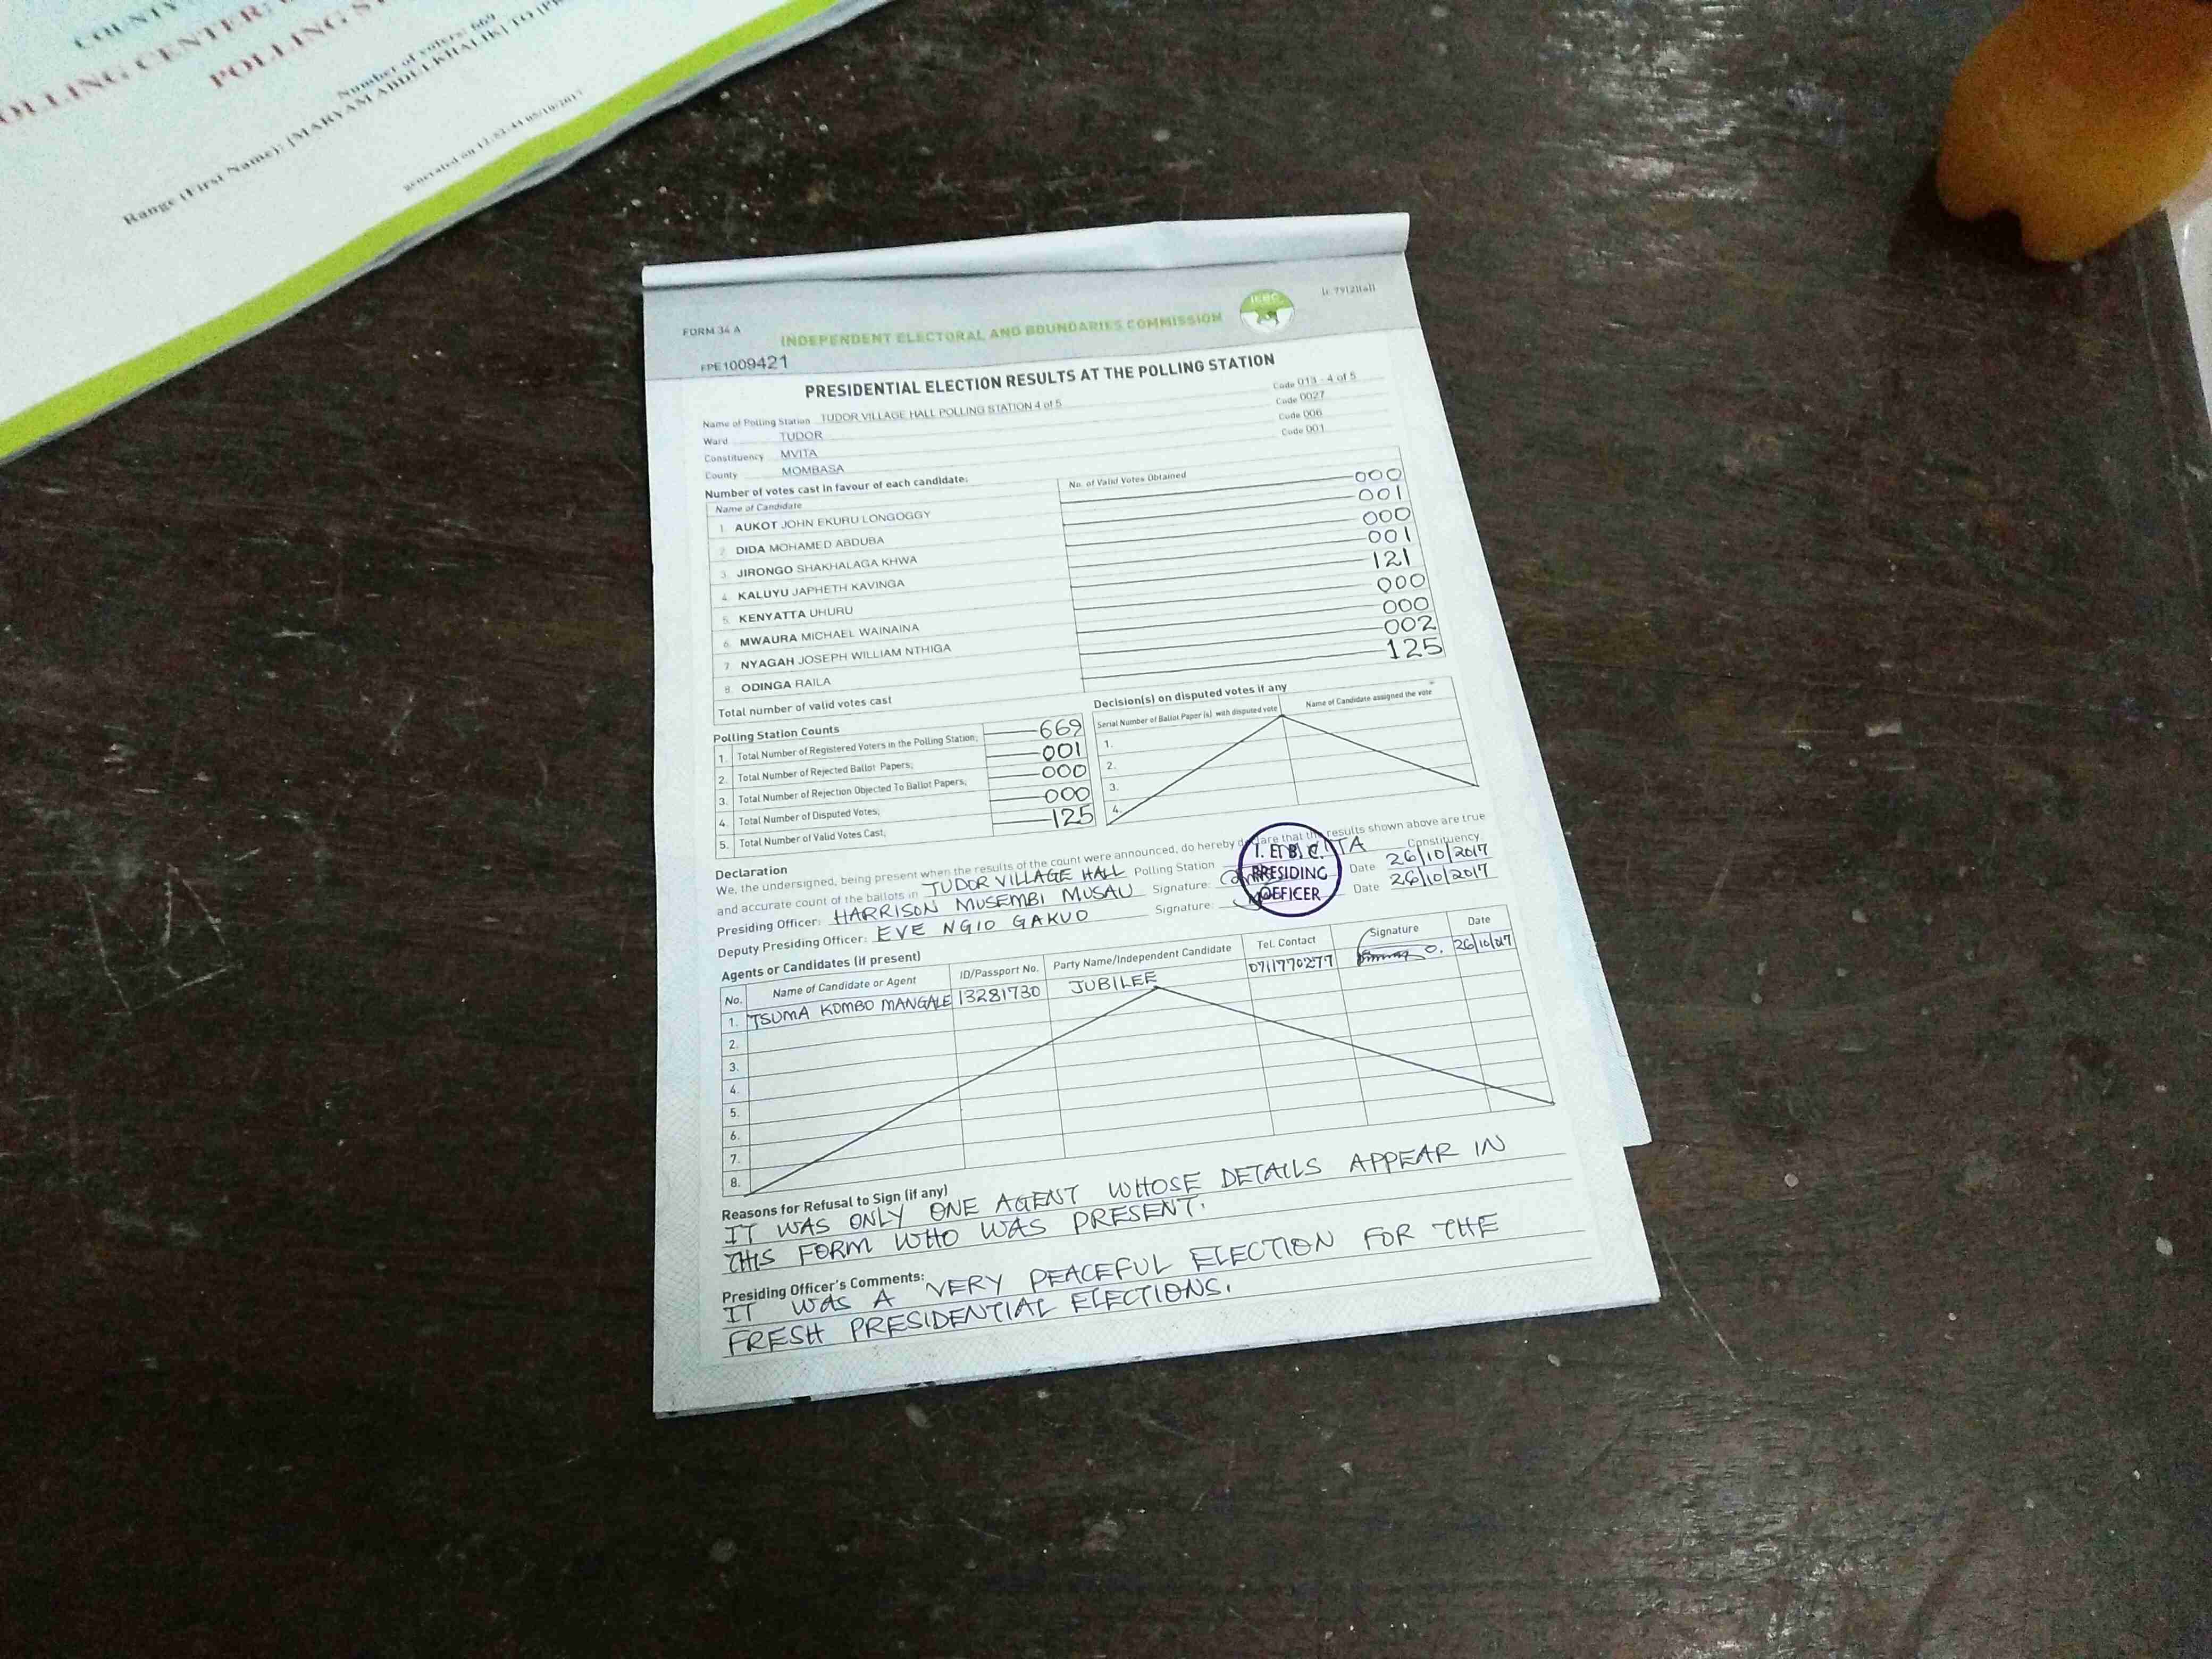 COUNTY
OLLING CENTER:
POLLING S
Number of voters: 669
Range (First Name): [MARYAM ABDULKHALIK] TO [PR
generated on
FORM 34 A
INDEPENDENT ELECTORAL AND BOUNDARIES COMMISSION
IEBC
FPE1009421
PRESIDENTIAL ELECTION RESULTS AT THE POLLING STATION
Name of Polling Station TUDOR VILLAGE HALL POLLING STATION 4 of 5 Code 013 - 4 of 5
Ward TUDOR Code 0027
Constituency MVITA Code 006
County MOMBASA Code 001
Number of votes cast in favour of each candidate:
Name of Candidate No. of Valid Votes Obtained
1. AUKOT JOHN EKURU LONGOGGY 000
2. DIDA MOHAMED ABDUBA 001
3. JIRONGO SHAKHALAGA KHWA 000
4. KALUYU JAPHETH KAVINGA 001
5. KENYATTA UHURU 121
6. MWAURA MICHAEL WAINAINA 000
7. NYAGAH JOSEPH WILLIAM NTHIGA 000
8. ODINGA RAILA 002
Total number of valid votes cast 125
Polling Station Counts
1. Total Number of Registered Voters in the Polling Station; 669
2. Total Number of Rejected Ballot Papers; 001
3. Total Number of Rejection Objected To Ballot Papers; 000
4. Total Number of Disputed Votes; 000
5. Total Number of Valid Votes Cast; 125
Decision(s) on disputed votes if any
Serial Number of Ballot Paper (s) with disputed vote Name of Candidate assigned the vote
1.
2.
3.
4.
Declaration
We, the undersigned, being present when the results of the count were announced, do hereby declare that the results shown above are true
and accurate count of the ballots in TUDOR VILLAGE HALL Polling Station Constituency
Presiding Officer: HARRISON MUSEMBI MUSAU Signature: Date 26/10/2017
Deputy Presiding Officer: EVE NGIO GAKUO Signature: Date 26/10/2017
I. E. B. C.
PRESIDING
OFFICER
Agents or Candidates (if present)
No. Name of Candidate or Agent ID/Passport No. Party Name/Independent Candidate Tel. Contact Signature Date
1. TSUMA KOMBO MANGALE 13281730 JUBILEE 0711770277 26/10/017
2.
3.
4.
5.
6.
7.
8.
Reasons for Refusal to Sign (if any)
IT WAS ONLY ONE AGENT WHOSE DETAILS APPEAR IN
THIS FORM WHO WAS PRESENT.
Presiding Officer's Comments:
IT WAS A VERY PEACEFUL ELECTION FOR THE
FRESH PRESIDENTIAL ELECTIONS.